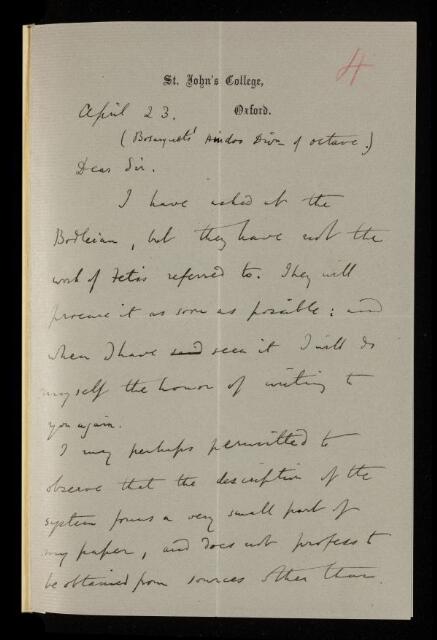 4
St. John's College,
April 23. Oxford.
(Bosanquets' Hindoo Divn of octave.)
Dear Sir.
I have asked at the
Bodleian, but they have not the
work of Fetis referred to. They will
procure it as soon as possible: and
when I have said seen it I will do
myself the honor of writing to
you again.
I may perhaps permitted to
observe that the description of the
system forms a very small part of
my paper, and does not profess to
be obtained from sources other than